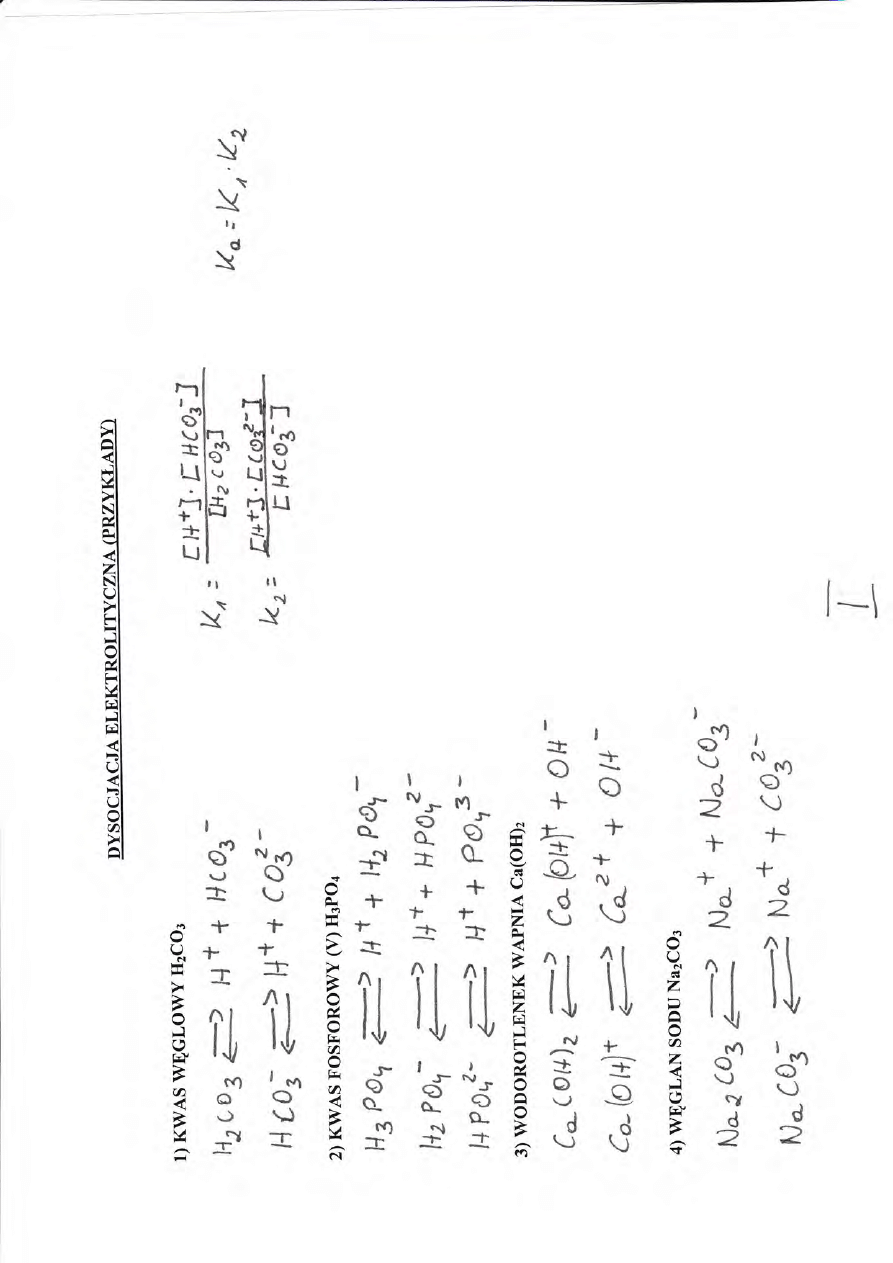 DYSOCJACJA ELEKTROLITYCZNA (PRZYKŁADY)
1) KWAS WĘGLOWY H₂CO₃
H₂CO₃ ⇄ H⁺ + HCO₃⁻
HCO₃⁻ ⇄ H⁺ + CO₃²⁻
K₁ = [H⁺]·[HCO₃⁻] / [H₂CO₃]
K₂ = [H⁺]·[CO₃²⁻] / [HCO₃⁻]
Kₐ = K₁·K₂
2) KWAS FOSFOROWY (V) H₃PO₄
H₃PO₄ ⇄ H⁺ + H₂PO₄⁻
H₂PO₄⁻ ⇄ H⁺ + HPO₄²⁻
HPO₄²⁻ ⇄ H⁺ + PO₄³⁻
3) WODOROTLENEK WAPNIA Ca(OH)₂
Ca(OH)₂ ⇄ Ca(OH)⁺ + OH⁻
Ca(OH)⁺ ⇄ Ca²⁺ + OH⁻
4) WĘGLAN SODU Na₂CO₃
Na₂CO₃ ⇄ Na⁺ + NaCO₃⁻
NaCO₃⁻ ⇄ Na⁺ + CO₃²⁻
I